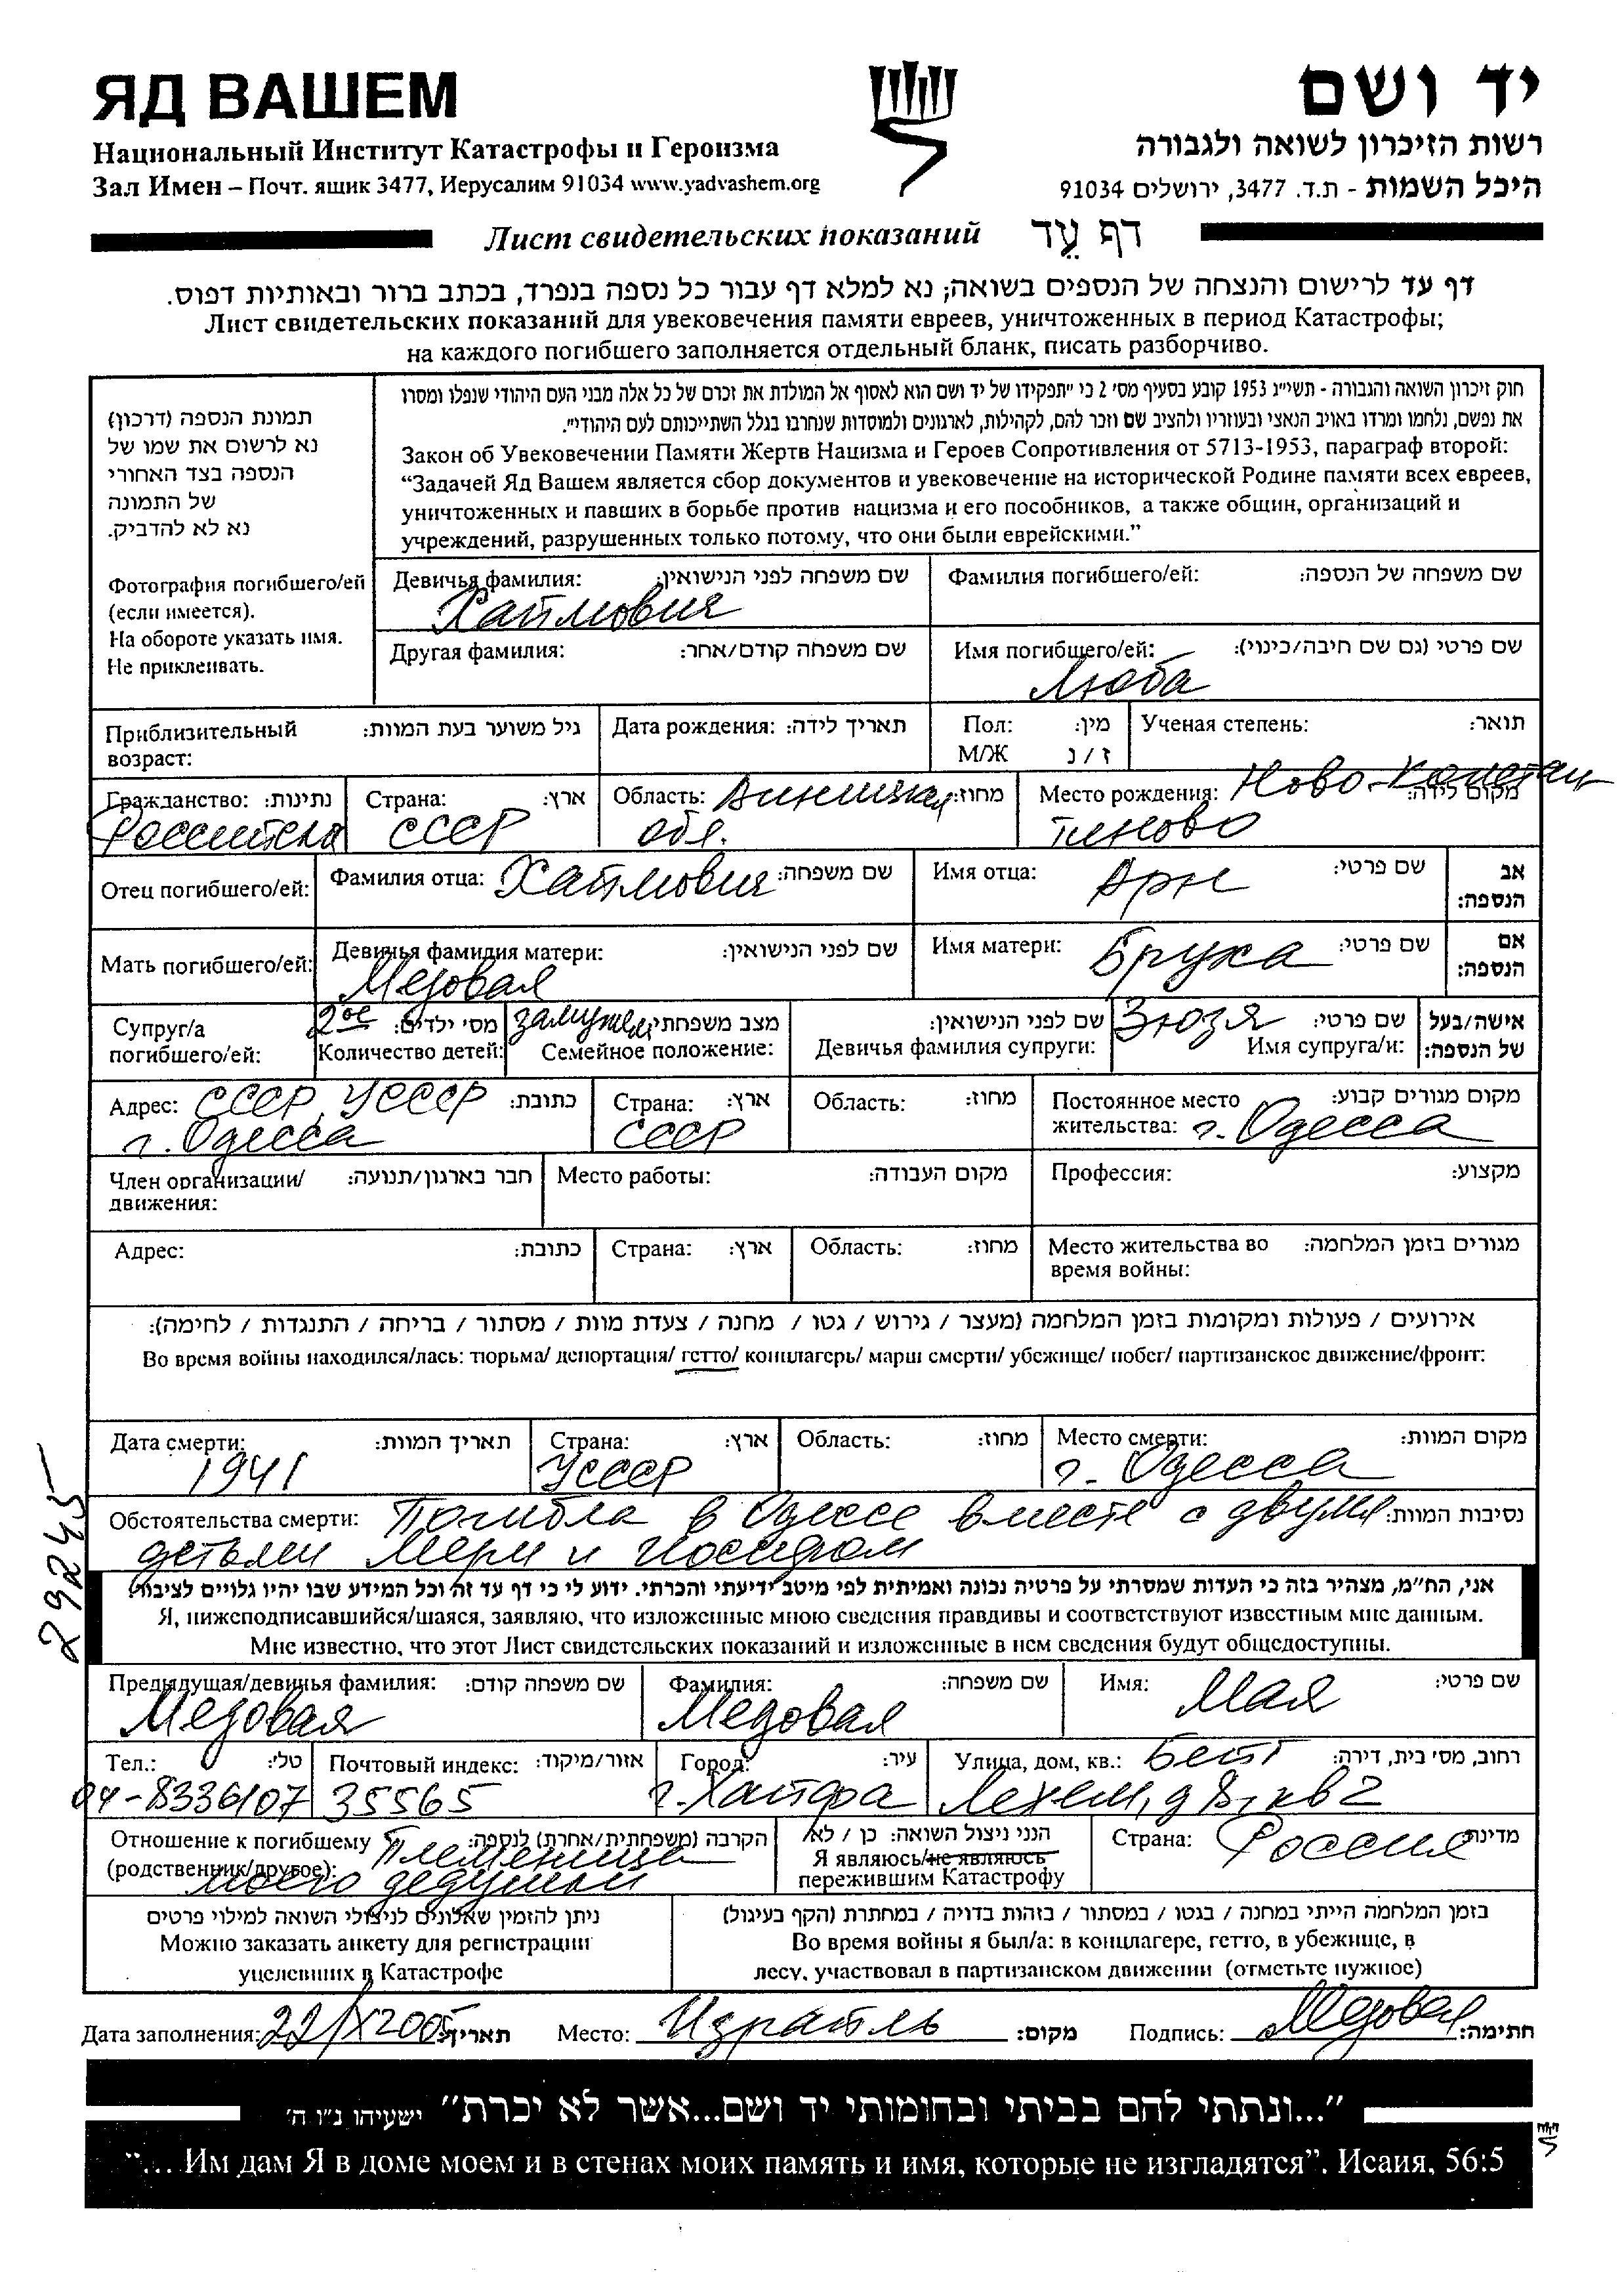 ЯД ВАШЕМ
יד ושם
Национальный Институт Катастрофы и Героизма
רשות הזיכרון לשואה ולגבורה
Зал Имен – Почт. ящик 3477, Иерусалим 91034 www.yadvashem.org
היכל השמות - ת.ד. 3477, ירושלים 91034
Лист свидетельских показаний דף עֵד
דף עד לרישום והנצחה של הנספים בשואה; נא למלא דף עבור כל נספה בנפרד, בכתב ברור ובאותיות דפוס.
Лист свидетельских показаний для увековечения памяти евреев, уничтоженных в период Катастрофы;
на каждого погибшего заполняется отдельный бланк, писать разборчиво.
תמונת הנספה (דרכון)
נא לרשום את שמו של
הנספה בצד האחורי
של התמונה
נא לא להדביק.
Фотография погибшего/ей
(если имеется).
На обороте указать имя.
Не приклеивать.
חוק זיכרון השואה והגבורה - תשי״ג 1953 קובע בסעיף מס׳ 2 כי ״תפקידו של יד ושם הוא לאסוף אל המולדת את זכרם של כל אלה מבני העם היהודי שנפלו ומסרו
את נפשם, נלחמו ומרדו באויב הנאצי ובעוזריו ולהציב שם וזכר להם, לקהילות, לארגונים ולמוסדות שנחרבו בגלל השתייכותם לעם היהודי״.
Закон об Увековечении Памяти Жертв Нацизма и Героев Сопротивления от 5713-1953, параграф второй:
“Задачей Яд Вашем является сбор документов и увековечение на исторической Родине памяти всех евреев,
уничтоженных и павших в борьбе против нацизма и его пособников, а также общин, организаций и
учреждений, разрушенных только потому, что они были еврейскими.”
Девичья фамилия: שם משפחה לפני הנישואין: Фамилия погибшего/ей: שם משפחה של הנספה:
Хаимович
Другая фамилия: שם משפחה קודם/אחר: Имя погибшего/ей: שם פרטי (גם שם חיבה/כינוי):
Люба
Приблизительный возраст: גיל משוער בעת המוות: Дата рождения: תאריך לידה: Пол: М/Ж מין: ז / נ Ученая степень: תואר:
Гражданство: נתינות: Страна: ארץ: Область: Виницкая מחוז: Место рождения: Ново-Констан מקום לידה:
СССР обл. тиново
Отец погибшего/ей: Фамилия отца: Хаимович שם משפחה: Имя отца: Арн שם פרטי: אב הנספה:
Мать погибшего/ей: Девичья фамилия матери: שם לפני הנישואין: Имя матери: Бруха שם פרטי: אם הנספה:
Медовая
Супруг/а погибшего/ей: 2ое מס׳ ילדים: Количество детей: замужем מצב משפחתי: Семейное положение: שם לפני הנישואין: Девичья фамилия супруги: Зюзя שם פרטי: Имя супруга/и: אישה/בעל של הנספה:
Адрес: СССР, УССР כתובת: Страна: ארץ: Область: מחוז: Постоянное место жительства: מקום מגורים קבוע:
г. Одесса СССР г. Одесса
Член организации/ движения: חבר בארגון/תנועה: Место работы: מקום העבודה: Профессия: מקצוע:
Адрес: כתובת: Страна: ארץ: Область: מחוז: Место жительства во время войны: מגורים בזמן המלחמה:
אירועים / פעולות ומקומות בזמן המלחמה (מעצר / גירוש / גטו / מחנה / צעדת מוות / מסתור / בריחה / התנגדות / לחימה):
Во время войны находился/лась: тюрьма/ депортация/ гетто/ концлагерь/ марш смерти/ убежище/ побег/ партизанское движение/фронт:
Дата смерти: תאריך המוות: Страна: ארץ: Область: מחוז: Место смерти: מקום המוות:
1941 УССР г. Одесса
Обстоятельства смерти: Погибла в Одессе вместе с двумя נסיבות המוות:
детьми Мери и Иосифом
29245
אני, הח״מ, מצהיר בזה כי העדות שמסרתי על פרטיה נכונה ואמיתית לפי מיטב ידיעתי והכרתי. ידוע לי כי דף עד זה וכל המידע שבו יהיו גלויים לציבור.
Я, нижеподписавшийся/шаяся, заявляю, что изложенные мною сведения правдивы и соответствуют известным мне данным.
Мне известно, что этот Лист свидетельских показаний и изложенные в нем сведения будут общедоступны.
Предыдущая/девичья фамилия: שם משפחה קודם: Фамилия: שם משפחה: Имя: שם פרטי:
Медовая Медовая Мая
Тел.: טלי: Почтовый индекс: אזור/מיקוד: Город: עיר: Улица, дом, кв.: Бейт רחוב, מס׳ בית, דירה:
04-8336107 35565 г. Хайфа Лехем, д 8, кв 2
Отношение к погибшему (родственник/другое): הקרבה (משפחתית/אחרת) לנספה: Племенница
моего дедушки
הנני ניצול השואה: כן / לא
Я являюсь/не являюсь
пережившим Катастрофу
Страна: Россия מדינה
ניתן להזמין שאלונים לניצולי השואה למילוי פרטים
Можно заказать анкету для регистрации
уцелевших в Катастрофе
בזמן המלחמה הייתי במחנה / בגטו / במסתור / בזהות בדויה / במחתרת (הקף בעיגול)
Во время войны я был/а: в концлагере, гетто, в убежище, в
лесу, участвовал в партизанском движении (отметьте нужное)
Дата заполнения: 22/X2005 תאריך: Место: Израиль מקום: Подпись: Медовая חתימה:
״...ונתתי להם בביתי ובחומותי יד ושם...אשר לא יכרת״ ישעיהו נ״ו ה׳
“... Им дам Я в доме моем и в стенах моих память и имя, которые не изгладятся”. Исаия, 56:5